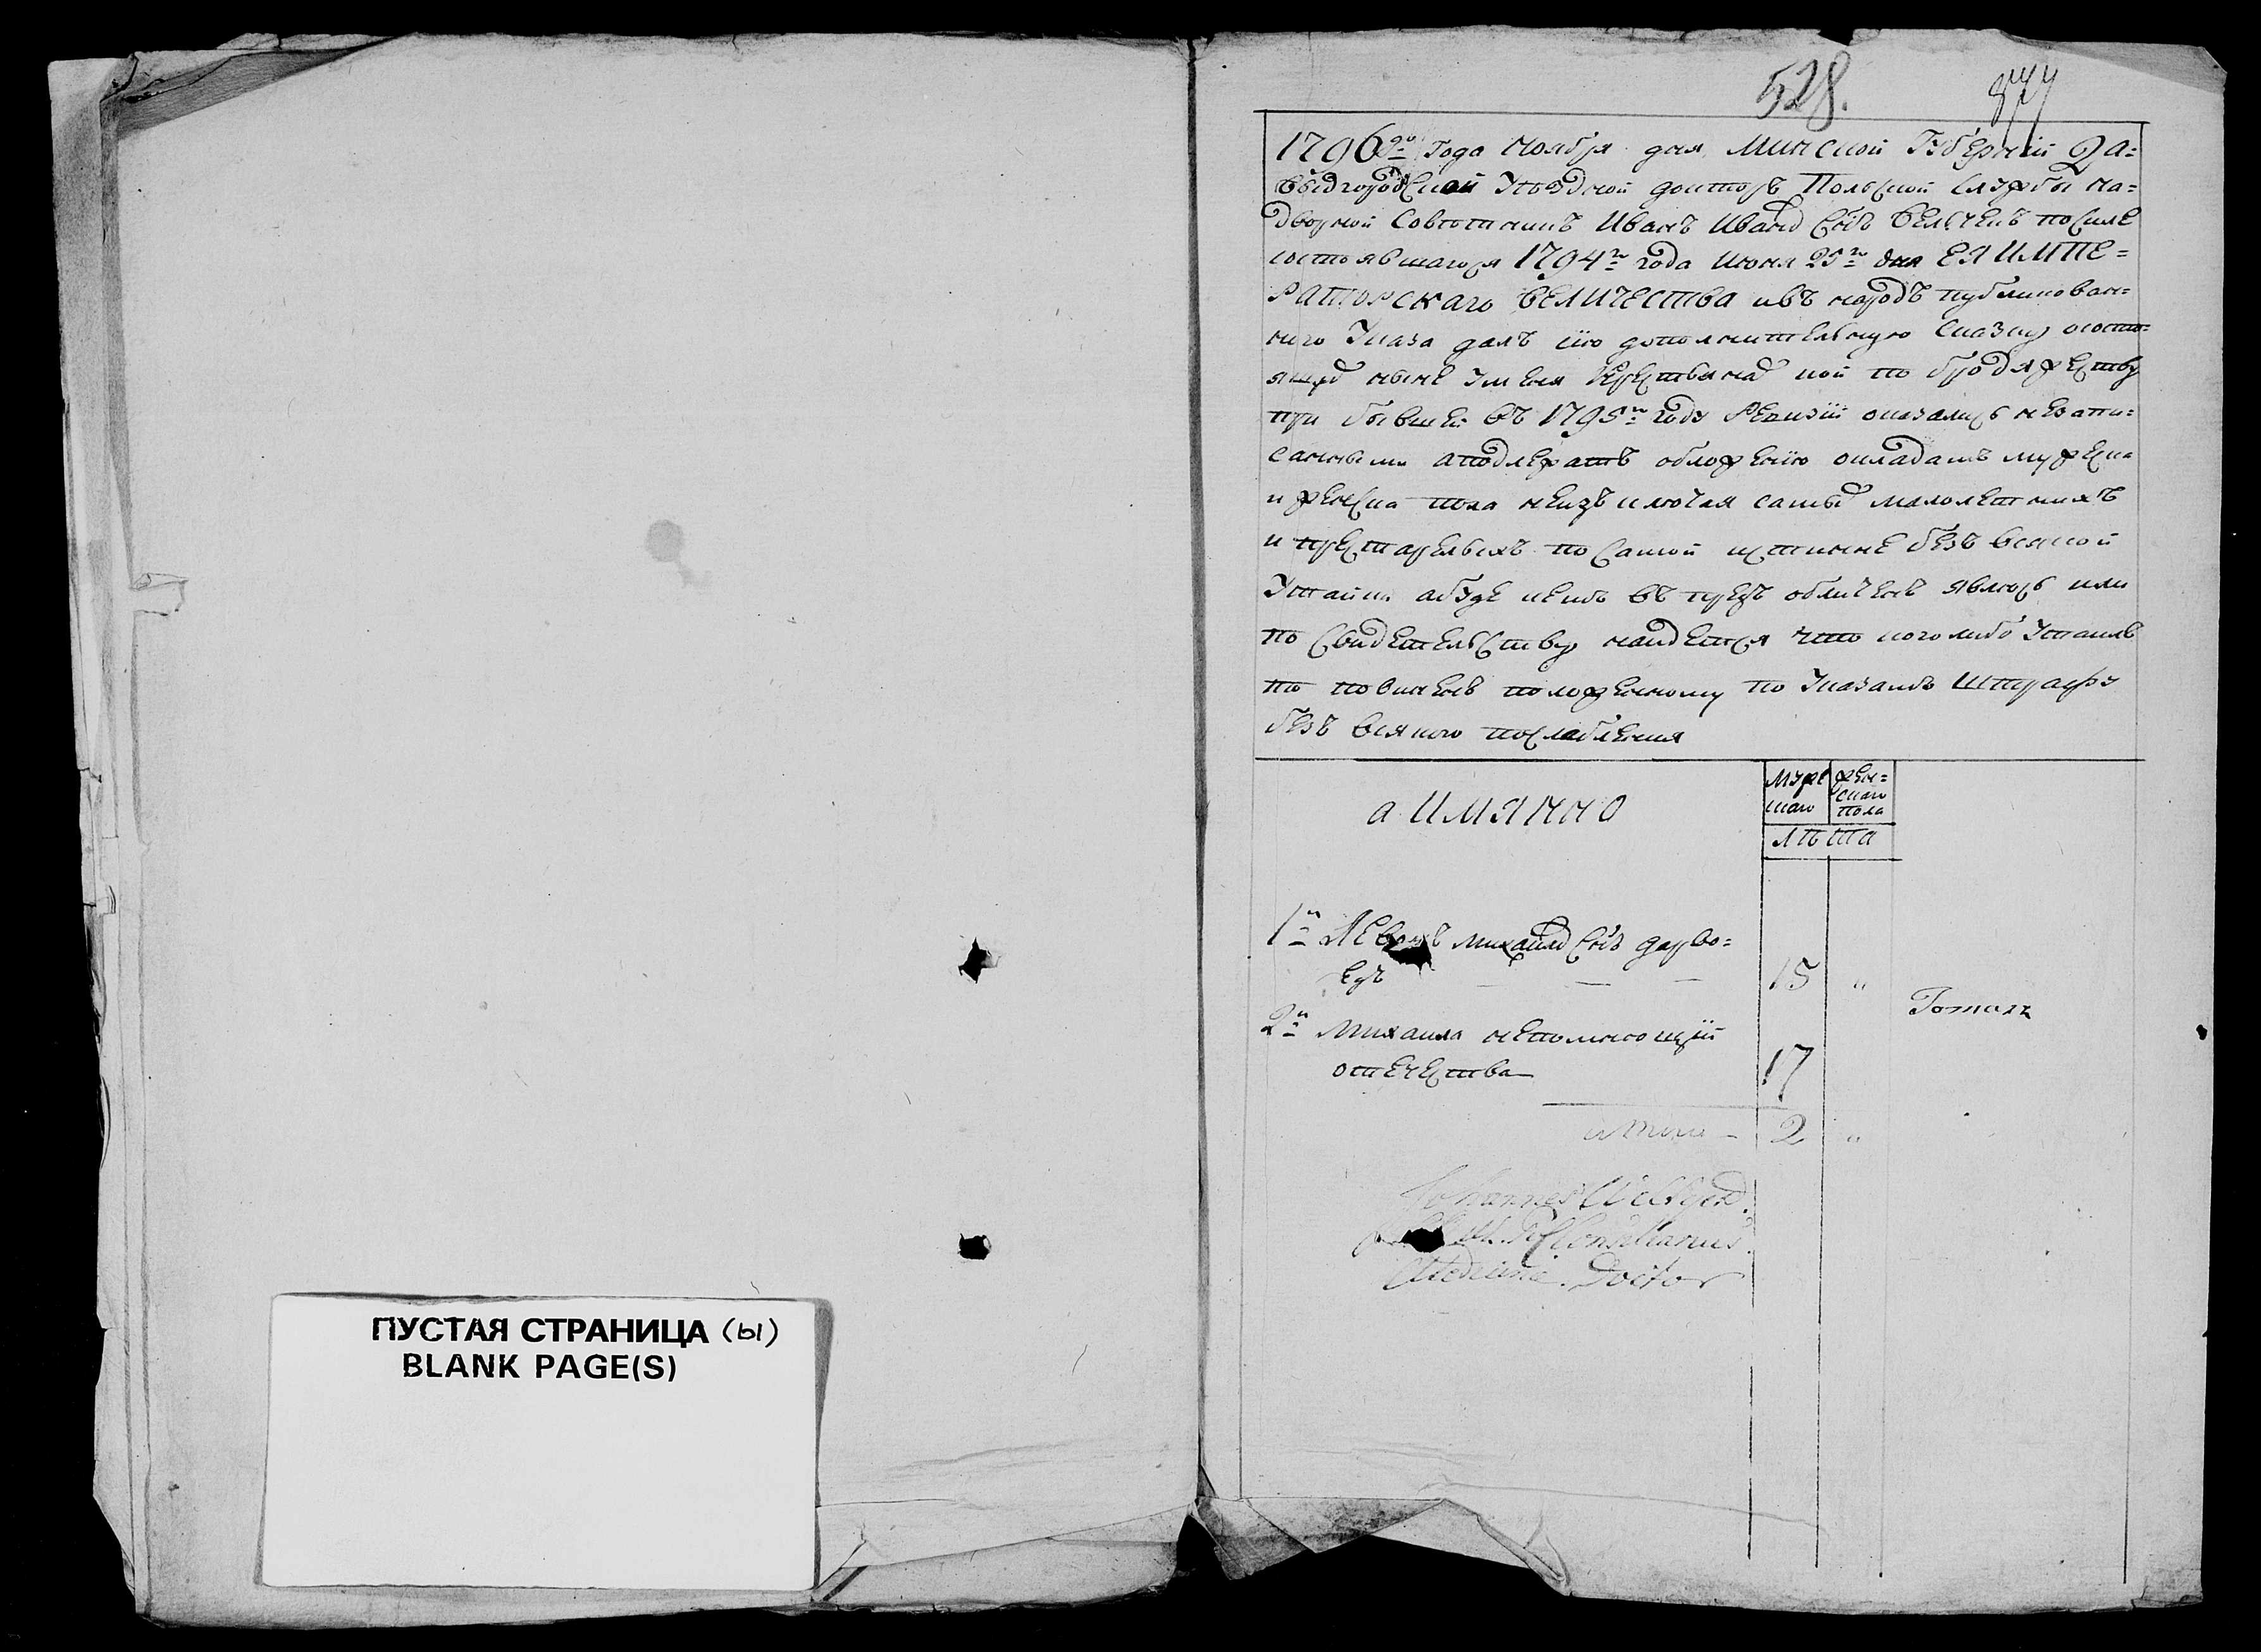 528.
1796го Года Ноября дня Минской Губернїи Да=
выдгородской Уѣздной докторъ Польской службы на=
дворной Совѣтникъ Иванъ Ивановъ сынъ Вельчекъ по силе
состоявшагося 1794го года Июня 23го дня ЕЯ ИМПЕ=
РАТОРСКАГО ВЕЛИЧЕСТВА и въ народъ публикован=
ного Указа далъ сїю дополнительную скаску о состо=
ящих ныне у меня крестьянах кои по бродяжеству
при бывшей въ 1795м году Ревизїи оказались незапи=
санными а подлежатъ обложенїю окладамъ мужеска
и женска пола неизъключая самых малолетнихъ
и престарелыхъ по самой истинне безъ всякой
Утайки а буде кемъ въ предъ обличенъ явлюсь или
по свидетельству найдется что кого либо Утаилъ
то повиненъ положенному по Указамъ Штрафу
безъ всякого послабления
а имянно
Муже
скаго
жен=
скаго
пола
лѣта
1й Левонъ Михайлов сынъ дарво=
едъ 15 "
2й Михаила непомнющїй
отечества 17
Tomasz
итого 2 "
Johannes
Consiliarius
Medicinæ Doctor
ПУСТАЯ СТРАНИЦА (ы)
BLANK PAGE(S)